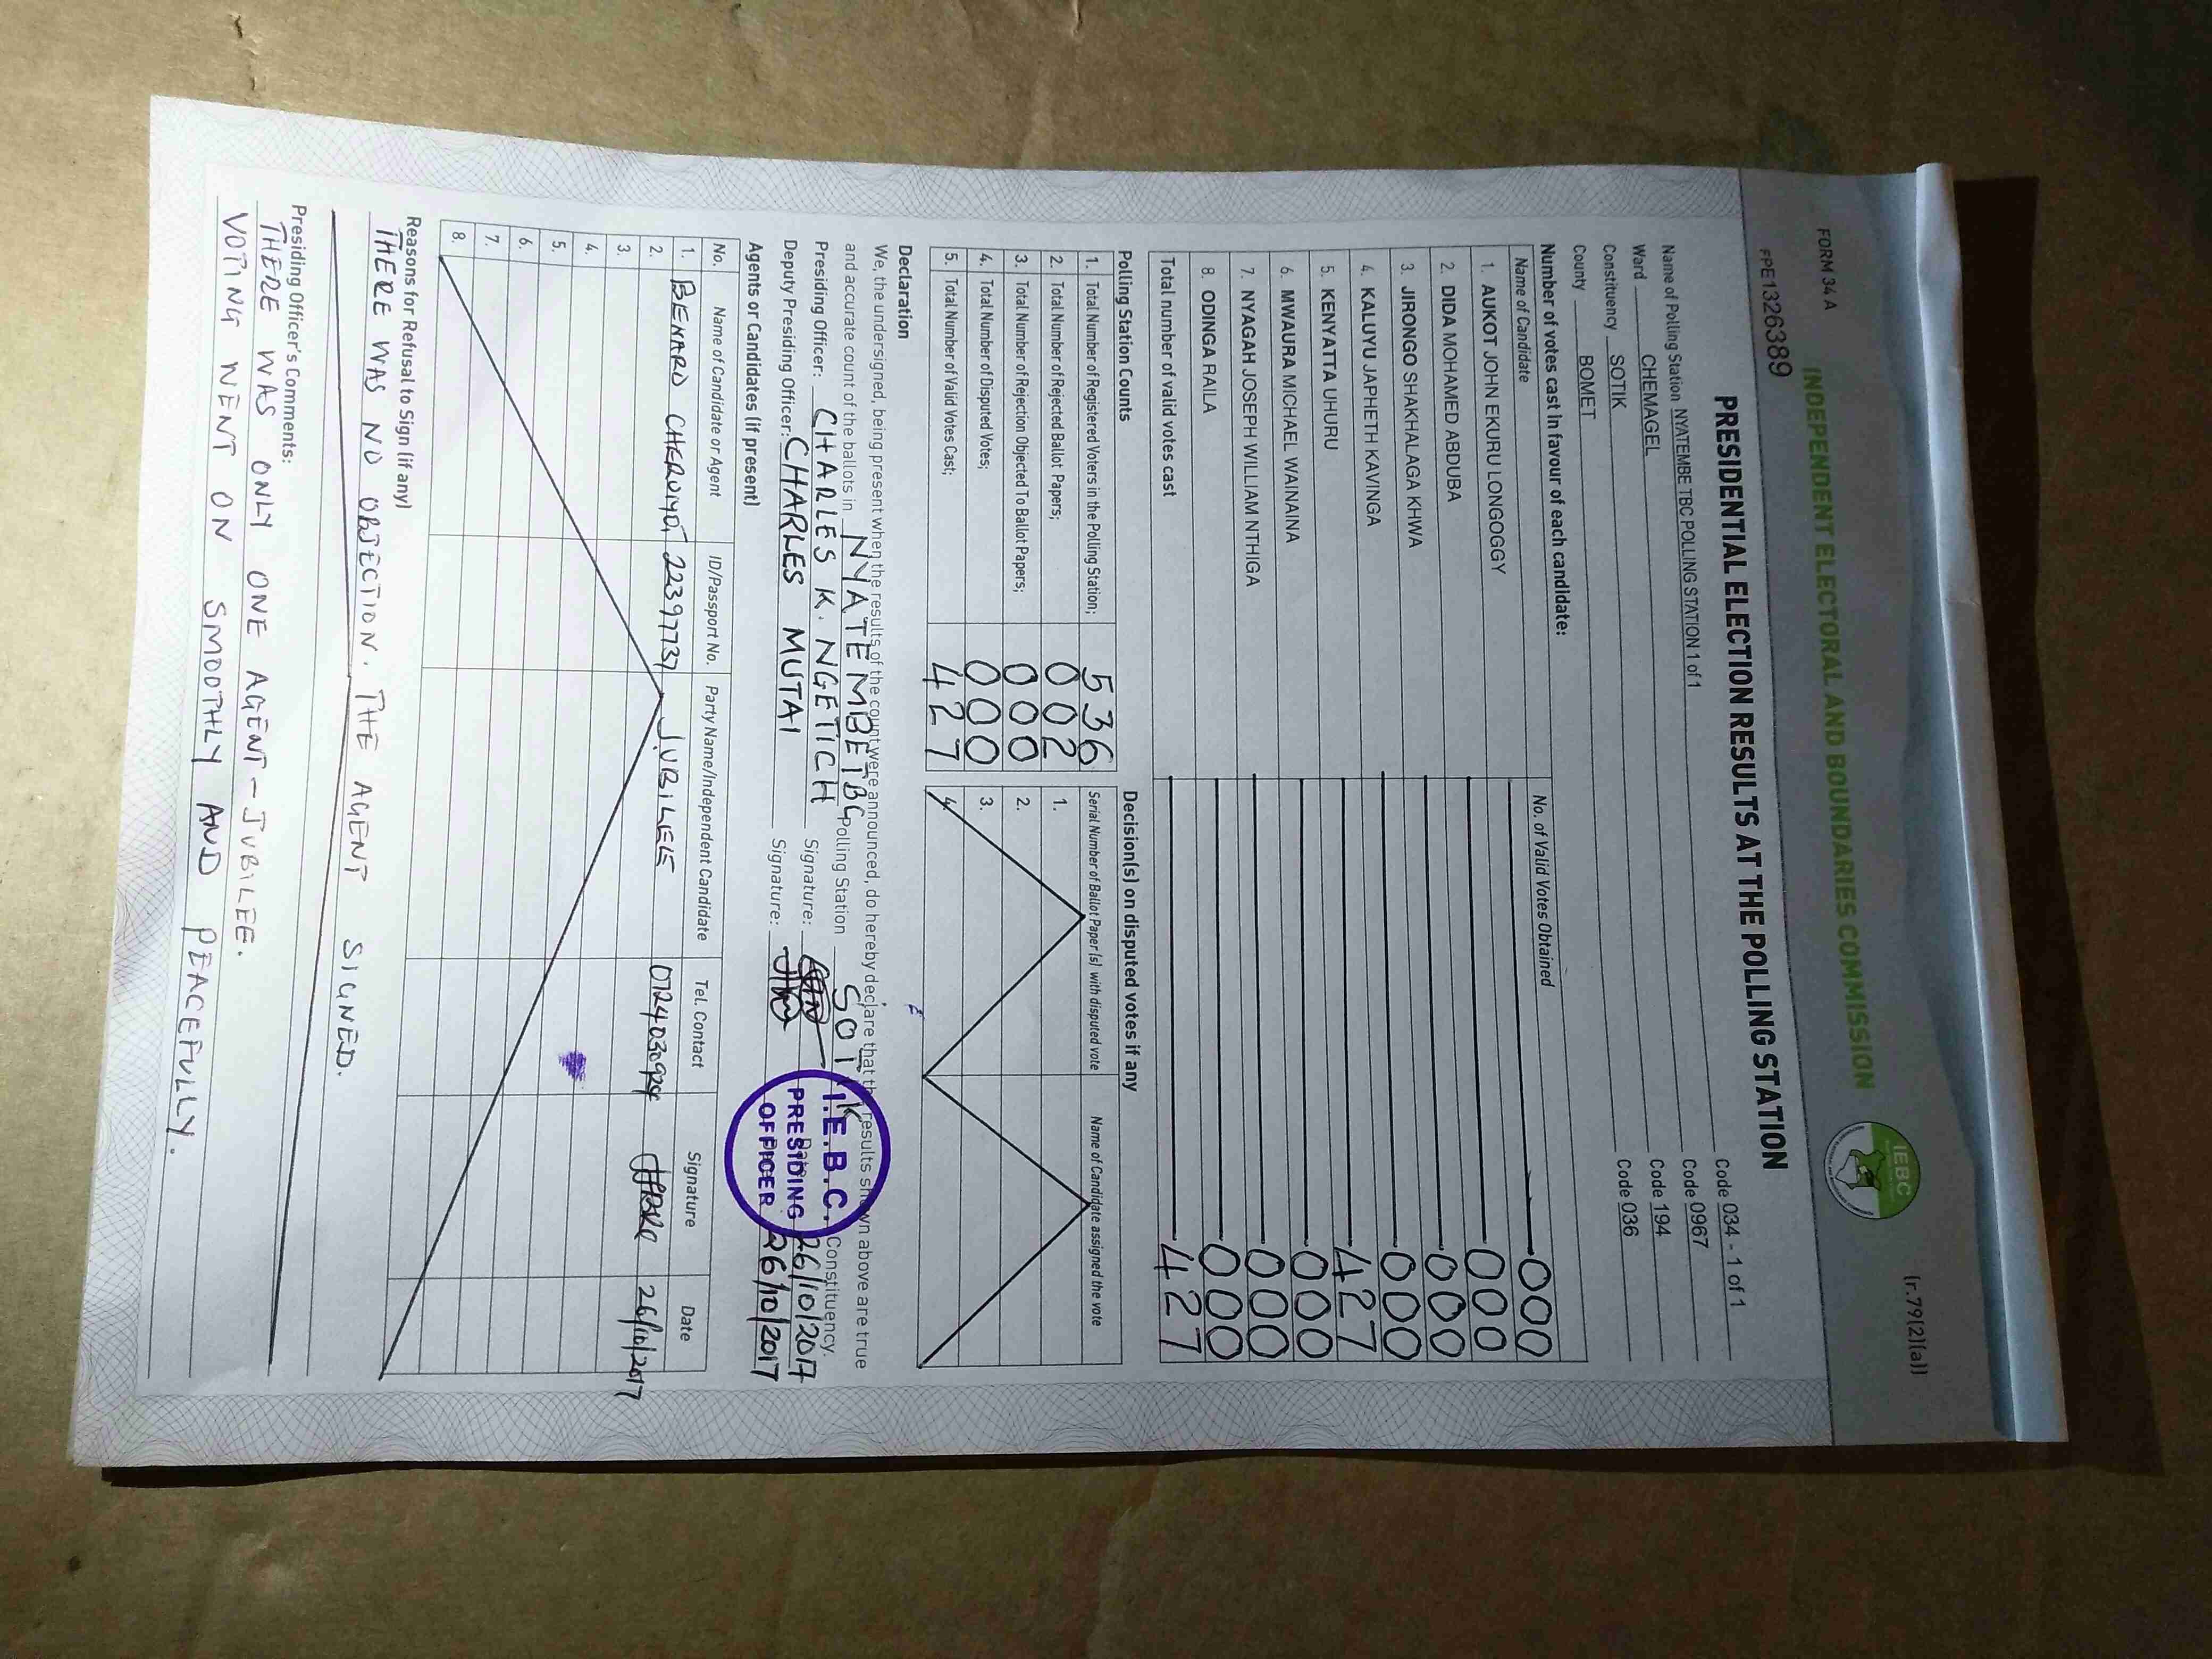 FORM 34 A
(r.79(2)(a))
INDEPENDENT ELECTORAL AND BOUNDARIES COMMISSION
IEBC
FPE1326389
PRESIDENTIAL ELECTION RESULTS AT THE POLLING STATION
Name of Polling Station NYATEMBE TBC POLLING STATION 1 of 1 Code 034 - 1 of 1
Ward CHEMAGEL Code 0967
Constituency SOTIK Code 194
County BOMET Code 036
Number of votes cast in favour of each candidate:
Name of Candidate No. of Valid Votes Obtained
1. AUKOT JOHN EKURU LONGOGGY 000
2. DIDA MOHAMED ABDUBA 000
3. JIRONGO SHAKHALAGA KHWA 000
4. KALUYU JAPHETH KAVINGA 000
5. KENYATTA UHURU 427
6. MWAURA MICHAEL WAINAINA 000
7. NYAGAH JOSEPH WILLIAM NTHIGA 000
8. ODINGA RAILA 000
Total number of valid votes cast 427
Polling Station Counts
1. Total Number of Registered Voters in the Polling Station; 536
2. Total Number of Rejected Ballot Papers; 002
3. Total Number of Rejection Objected To Ballot Papers; 000
4. Total Number of Disputed Votes; 000
5. Total Number of Valid Votes Cast; 427
Decision(s) on disputed votes if any
Serial Number of Ballot Paper(s) with disputed vote Name of Candidate assigned the vote
1.
2.
3.
4
Declaration
We, the undersigned, being present when the results of the count were announced, do hereby declare that the results shown above are true
and accurate count of the ballots in NYATEMBE TBC Polling Station SOTIK Constituency.
Presiding Officer: CHARLES K. NGETICH Signature: 26/10/2017
Deputy Presiding Officer: CHARLES MUTAI Signature: 26/10/2017
I.E.B.C.
PRESIDING
OFFICER
Agents or Candidates (if present)
No. Name of Candidate or Agent ID/Passport No. Party Name/Independent Candidate Tel. Contact Signature Date
1. BENARD 22397737 JUBILEE 26/10/2017
2.
3.
4.
5.
6.
7.
8.
Reasons for Refusal to Sign (if any)
THERE WAS NO OBJECTION. THE AGENT SIGNED.
Presiding Officer's Comments:
THERE WAS ONLY ONE AGENT - JUBILEE.
VOTING WENT ON SMOOTHLY AND PEACEFULLY.